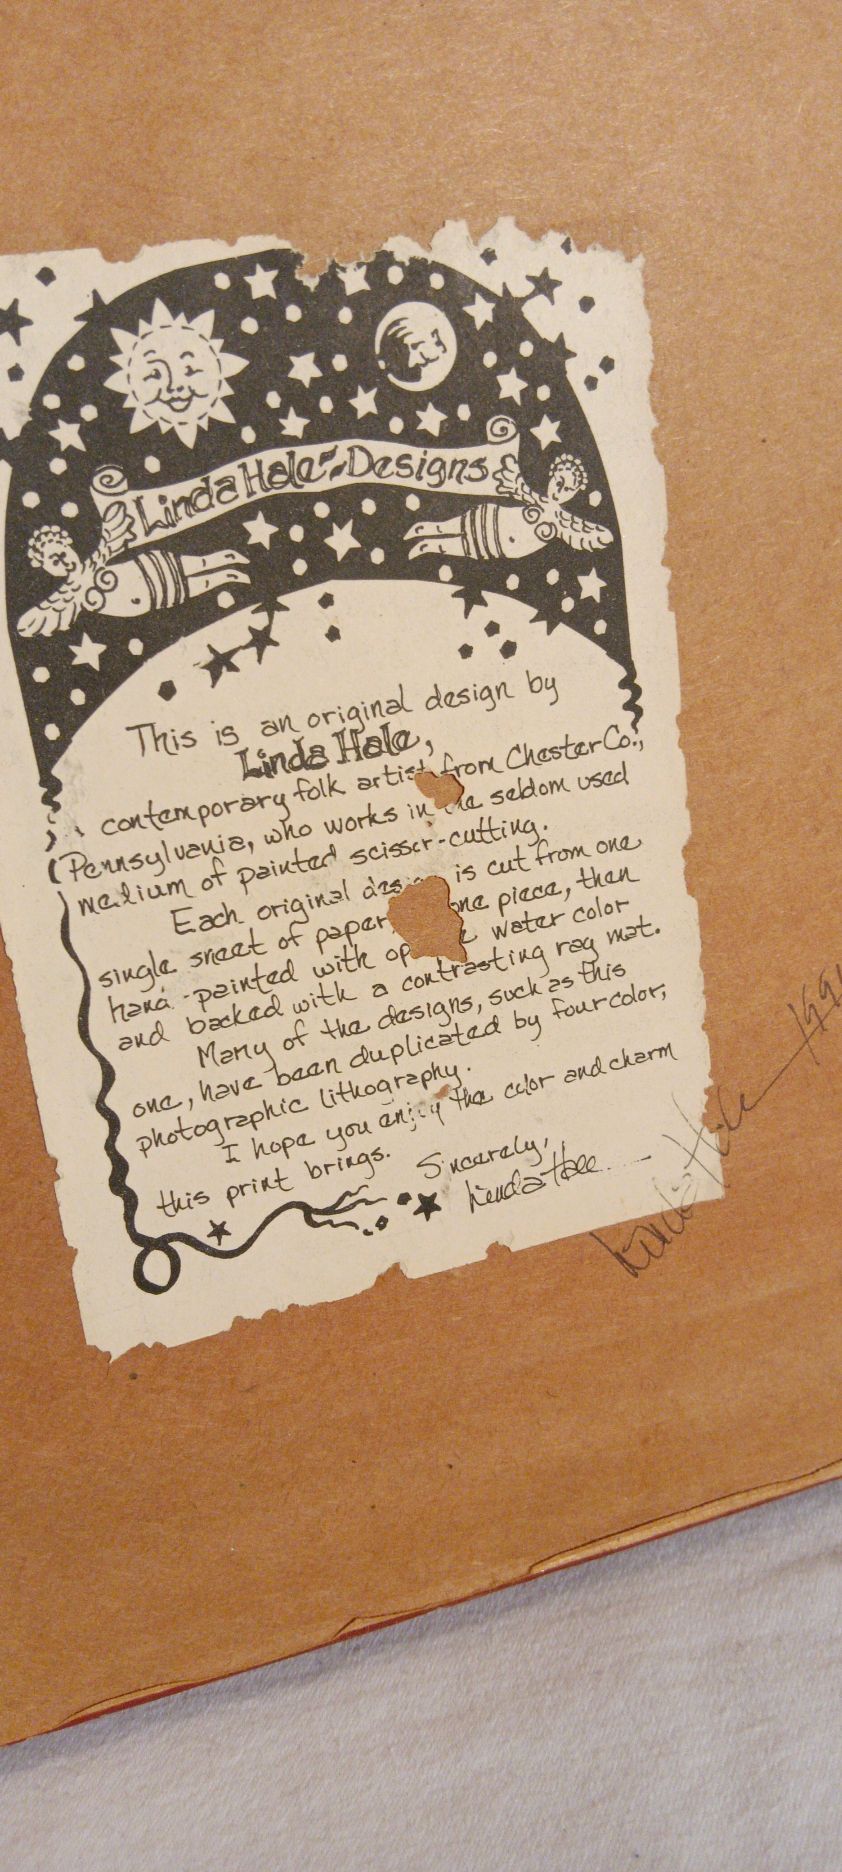 Linda Hale Designs
This is an original design by
Linda Hale,
contemporary folk artist from Chester Co.,
Pennsylvania, who works in the seldom used
medium of painted scissor-cutting.
Each original design is cut from one
single sheet of paper, one piece, then
hand-painted with water color
and backed with a contrasting rag mat.
Many of the designs, such as this
one, have been duplicated by four color,
photographic lithography.
I hope you enjoy the color and charm
this print brings.
Sincerely,
Linda Hale
Linda Hale